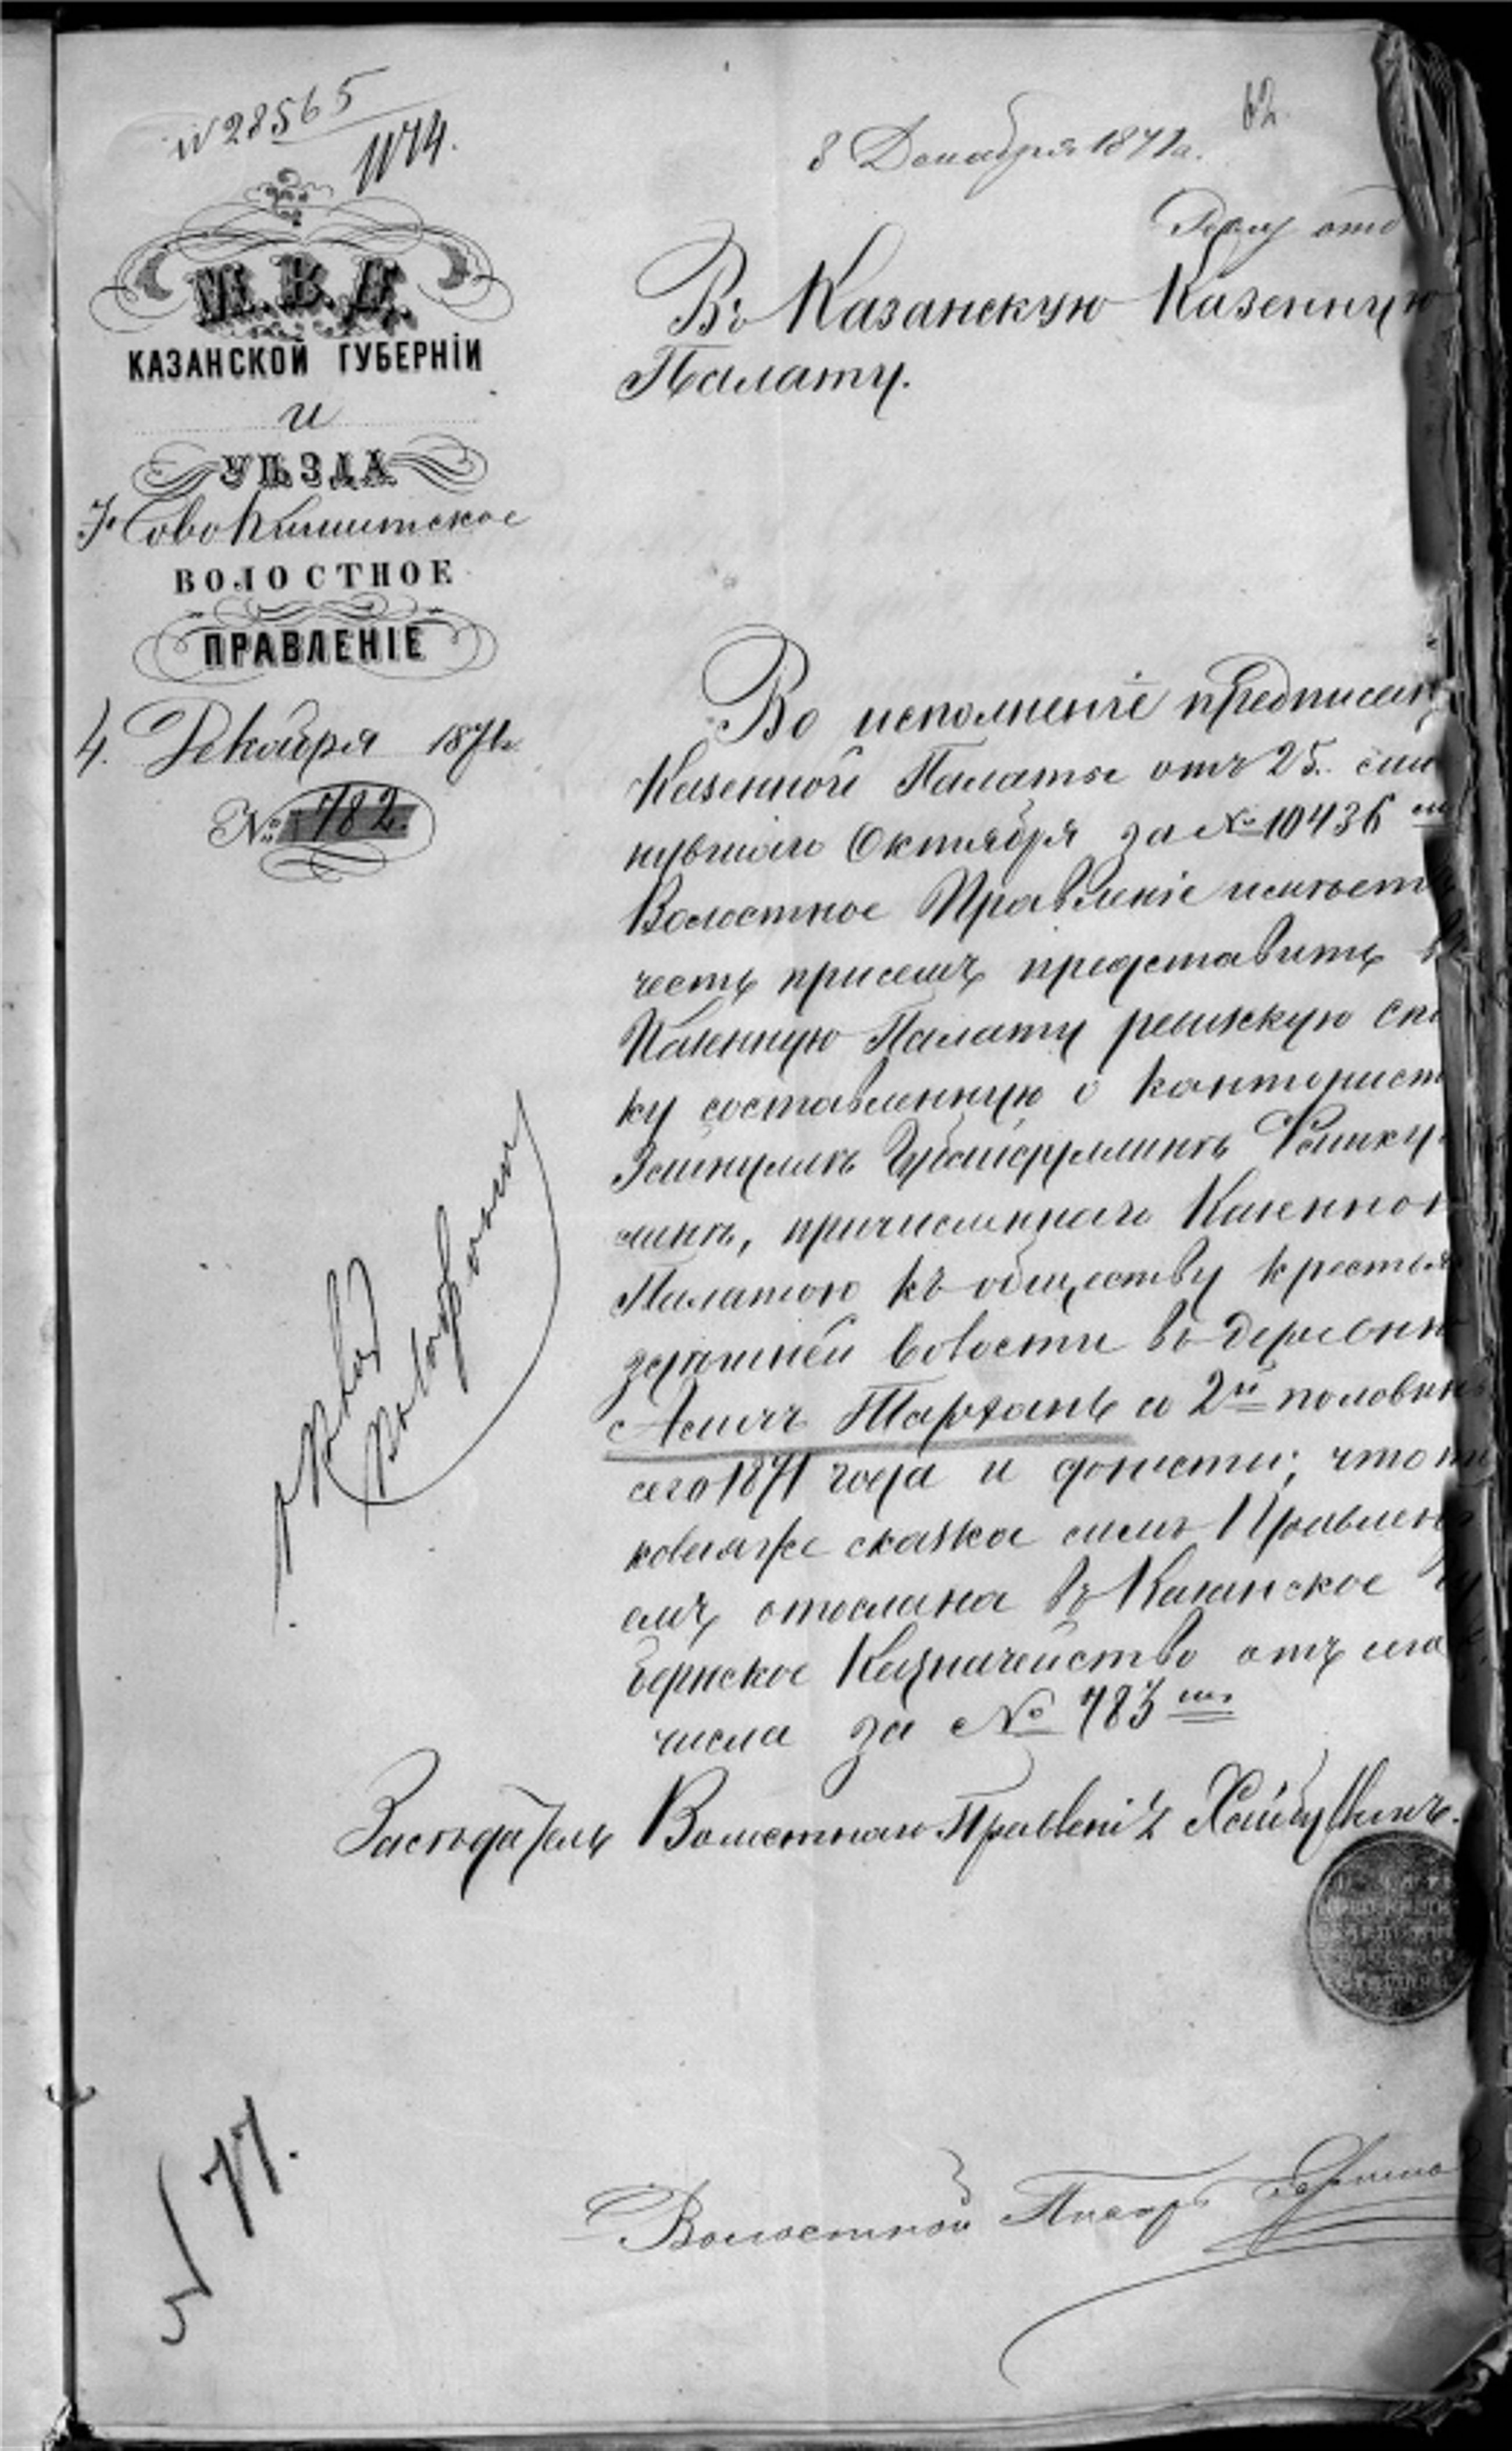 № 28565
1174.
62.
8 Декабря 1871 г.
М. В. Д.
КАЗАНСКОЙ ГУБЕРНІИ
и
УѢЗДА
Ново Кишитское
ВОЛОСТНОЕ
ПРАВЛЕНІЕ
4. Декабря 1871 г.
№ 782.
Въ Казанскую Казенную
Палату.
Во исполненіе предписан
Казенной Палаты отъ 25. сми
нувшаго Октября за № 10436
Волостное Правленіе имѣетъ
честь присемъ представить въ
Казенную Палату ревижскую ска
ку составленную о кантонист
Зейнулинъ
линъ, причисленнаго Казенной
Палатою къ обществу крестья
здѣшней волости въ деревни
Тархань со 2й половин
сего 1871 года и донести, что
коваяже сказка симъ Правлен
емъ отослана въ Казанское Гу
бернское Казначейство отъ
числа за № 783
Засѣдатель Волостнаго Правленія
Волостной Писарь
77.